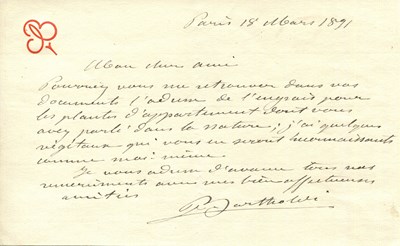 Paris 18 Mars 1891
Mon cher ami
Pourriez vous me retrouver dans vos
documents l'adresse de l'engrais pour
les plantes d'appartement dont vous
avez parlé dans la Nature; j'ai quelques
végétaux qui vous en seront reconnaissants
comme moi même.
Je vous adresse d'avance tous nos
remerciements avec mes bien affectueuses
amitiés
Bartholdi